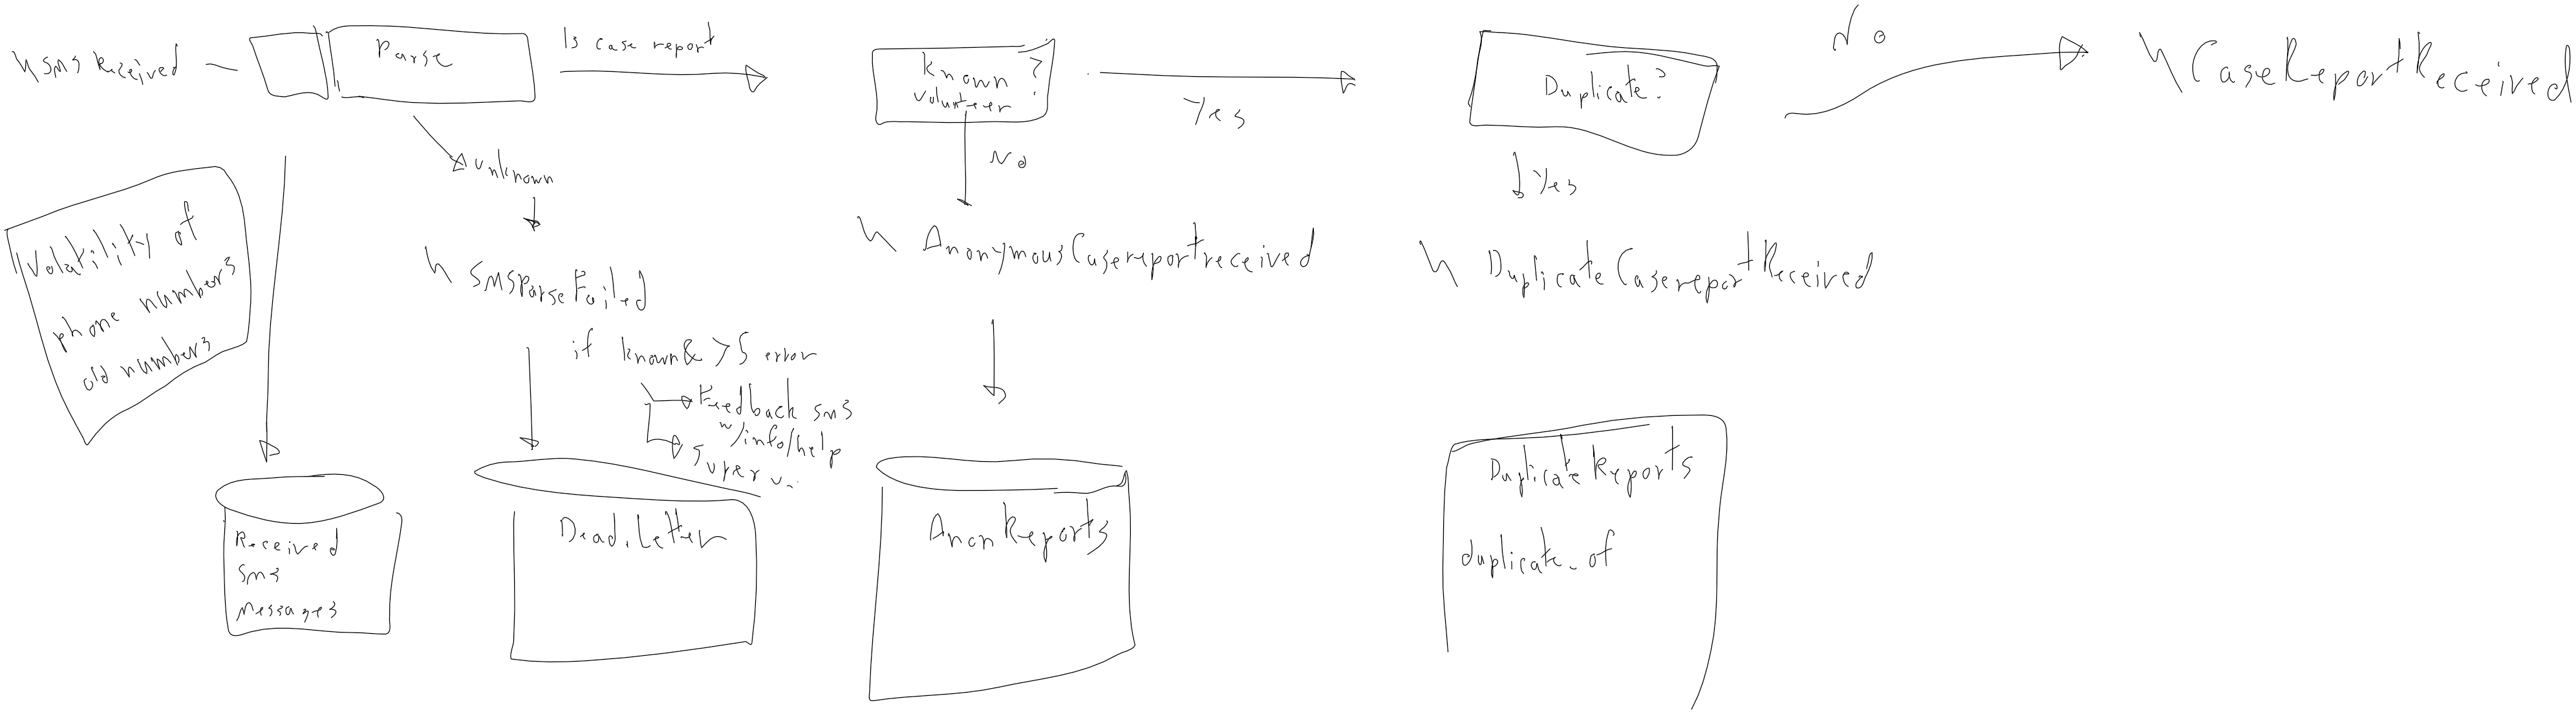 SMS Received
Parse
Is case report
Known ?
volunteer
Yes
Duplicate?
No
CaseReportReceived
unknown
No
Yes
Volatility of
phone numbers
old numbers
SMSParseFailed
AnonymousCasereportreceived
DuplicateCasereportReceived
if known & >5 error
Feedback sms
w/info/help
Superv..
Received
SMS
Messages
Dead.Letter
AnonReports
DuplicateReports
duplicate_of